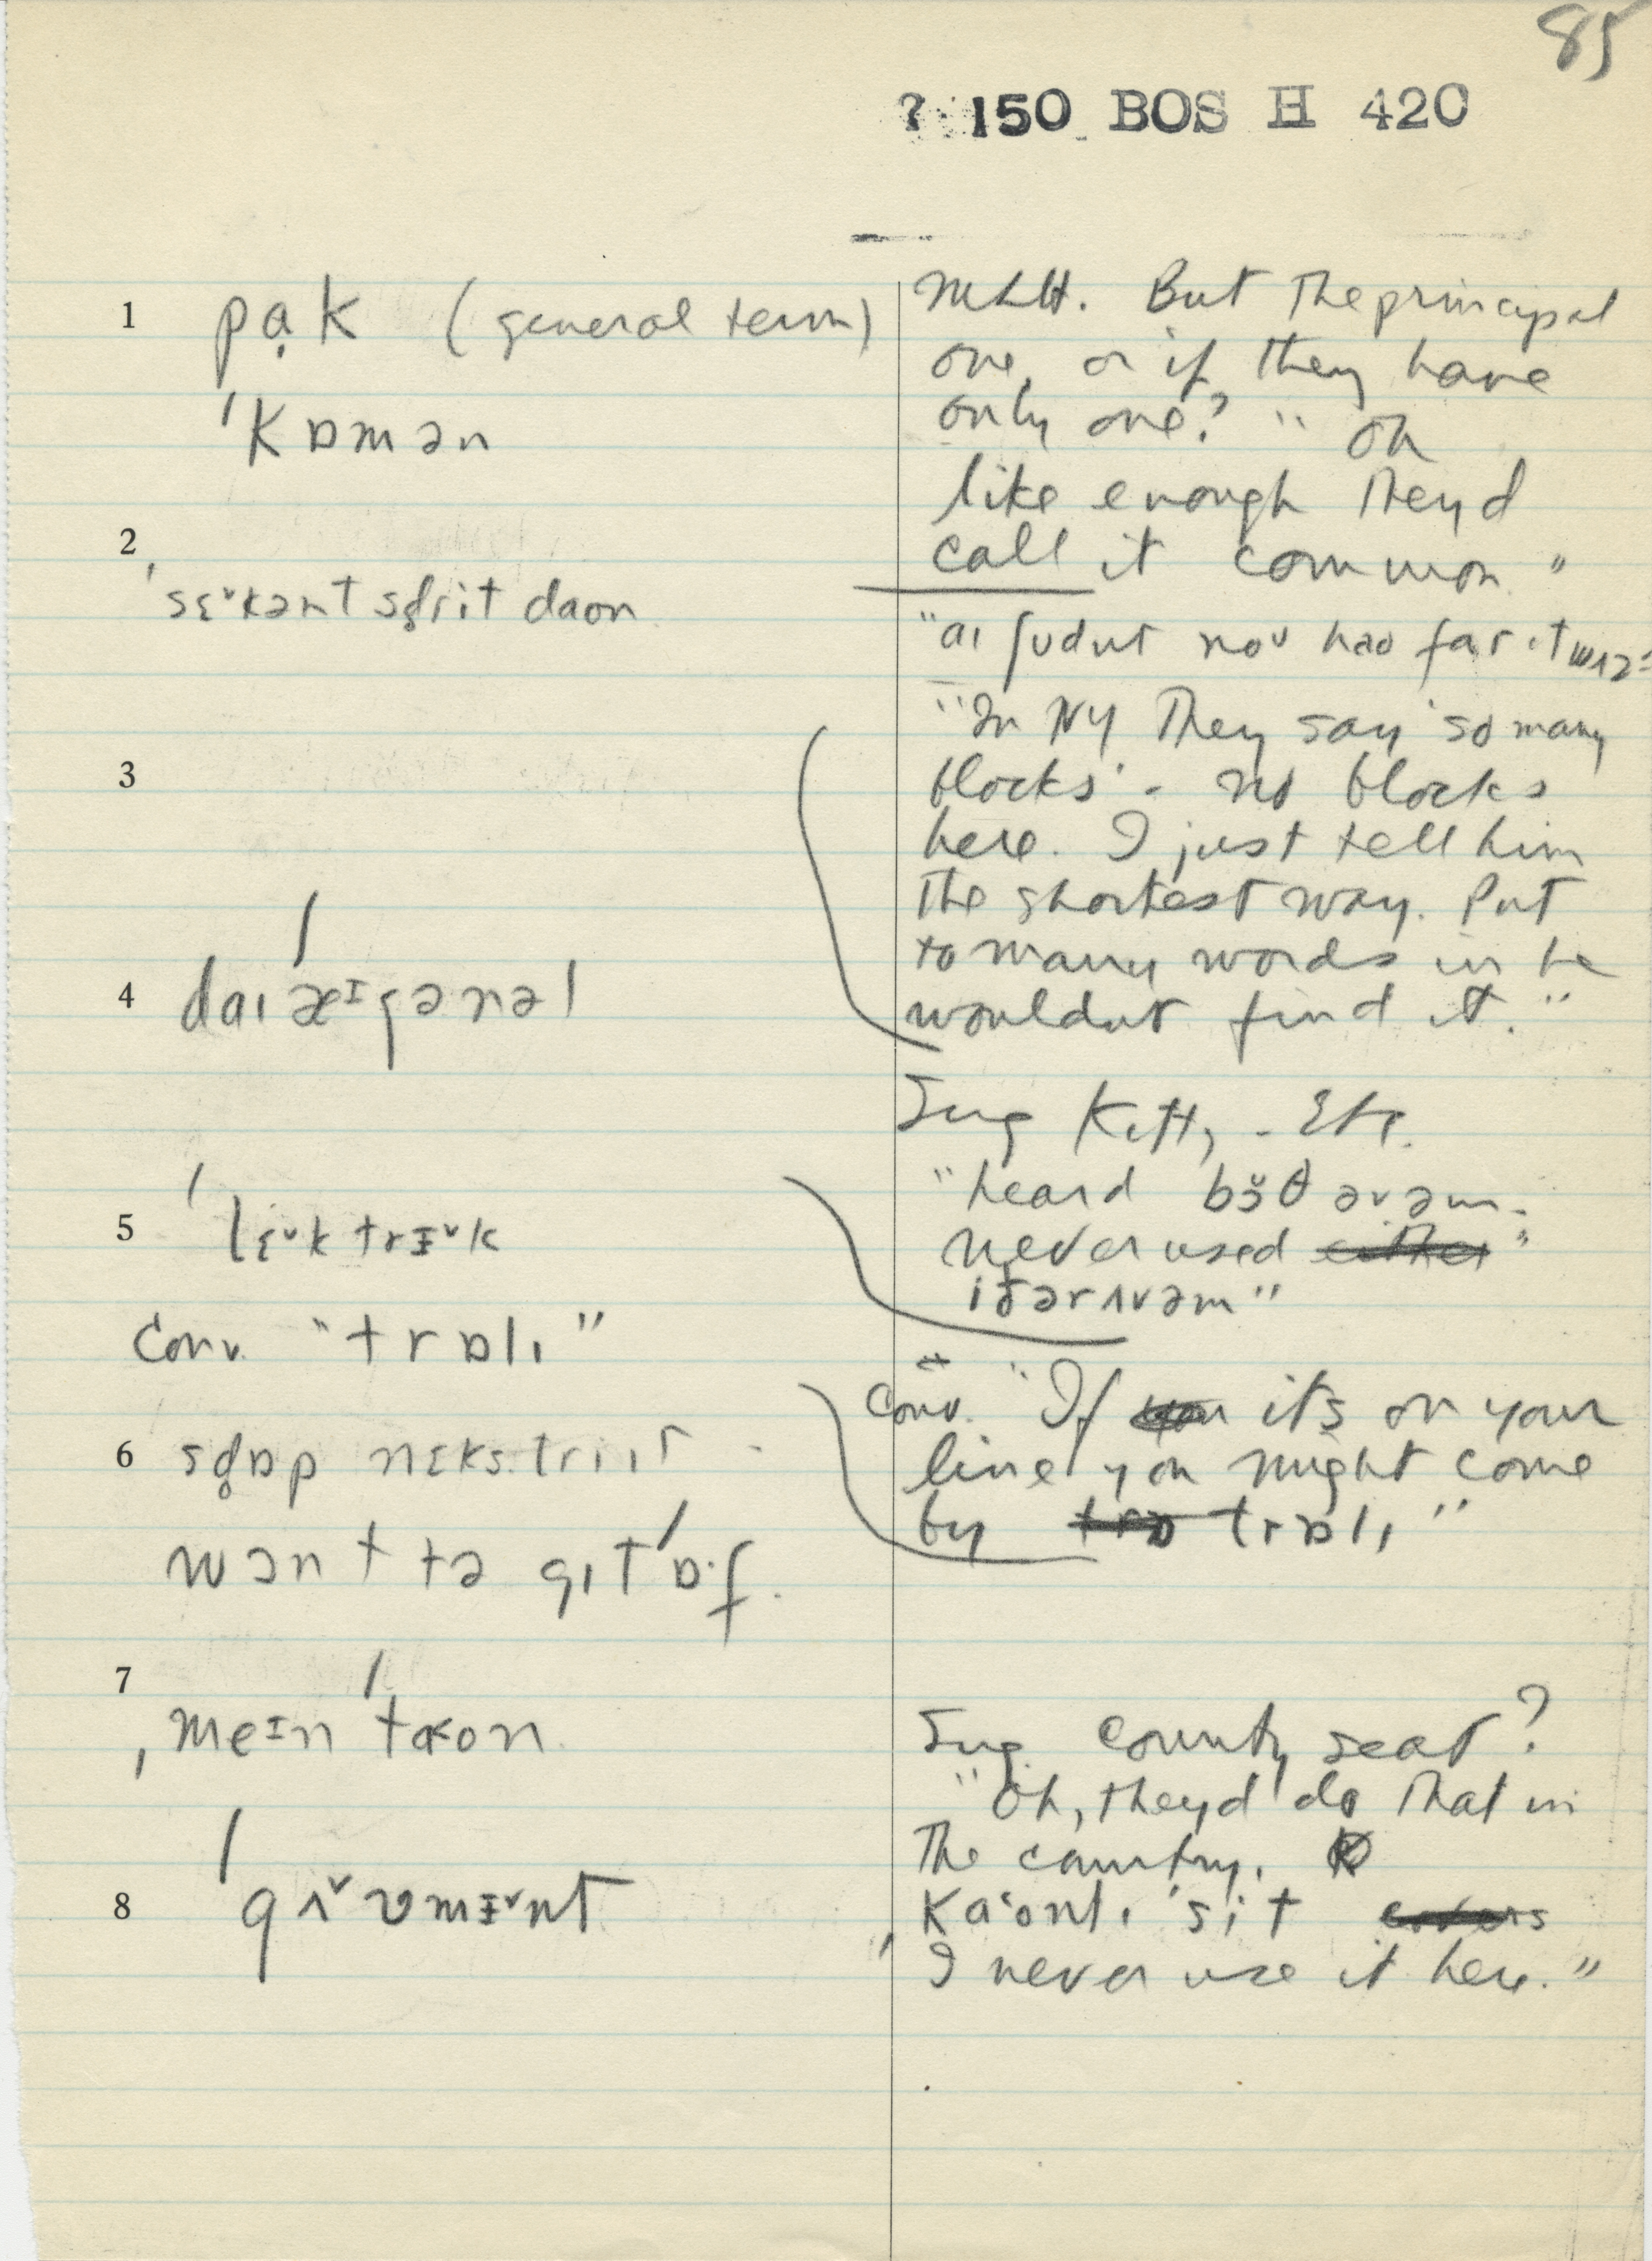 85
? 150 BOS H 420
1 pạk (general term)
ˈkɒmən
2
ˈsɛ˅kənt sd̥rit daon
3
4 daɪˈæᶦgənəl
5 ˈlɛ˅ktrɪ˅k
Conv. "trɒlɪ"
6 sd̥ɒp nɛkstriit
wənt tə gɪtˈɒ·f.
7
ˌmeɪnˈtaon
8 ˈgʌ˅vmɪ˅nt
MLH. But the principal
one, or if they have
only one? "Oh
like enough they d
call it common"
"aɪ ʃudnt noᵘ hao far it wʌz"
"In NY they say 'so many
blocks' - no blocks
here. I just tell him
the shortest way. Put
to many words in he
wouldnt find it."
Sug Kitty - Etc.
"heard bɔ̆θ əvəm.
never used either"
iðərʌvəm"
Conv. "If you its on your
line you might come
by trɒ trɒlɪ"
Sug. county seat?
"Oh, theyd do that in
the country.
ˌkaontɪˈsit
I never use it here."